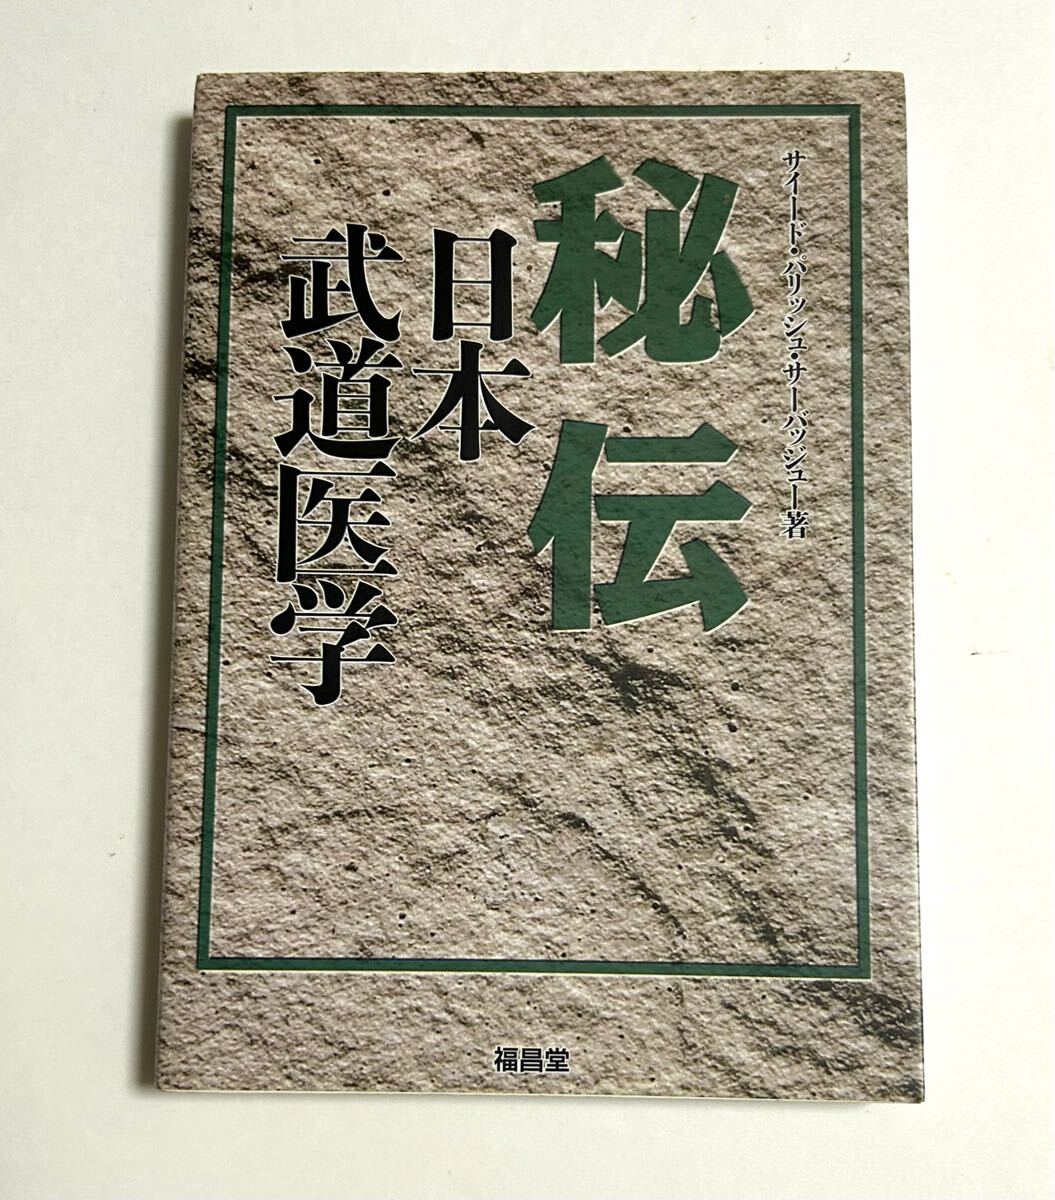 サイード・パリッシュ・サーバッジュー著
秘伝
日本
武道医学
福昌堂